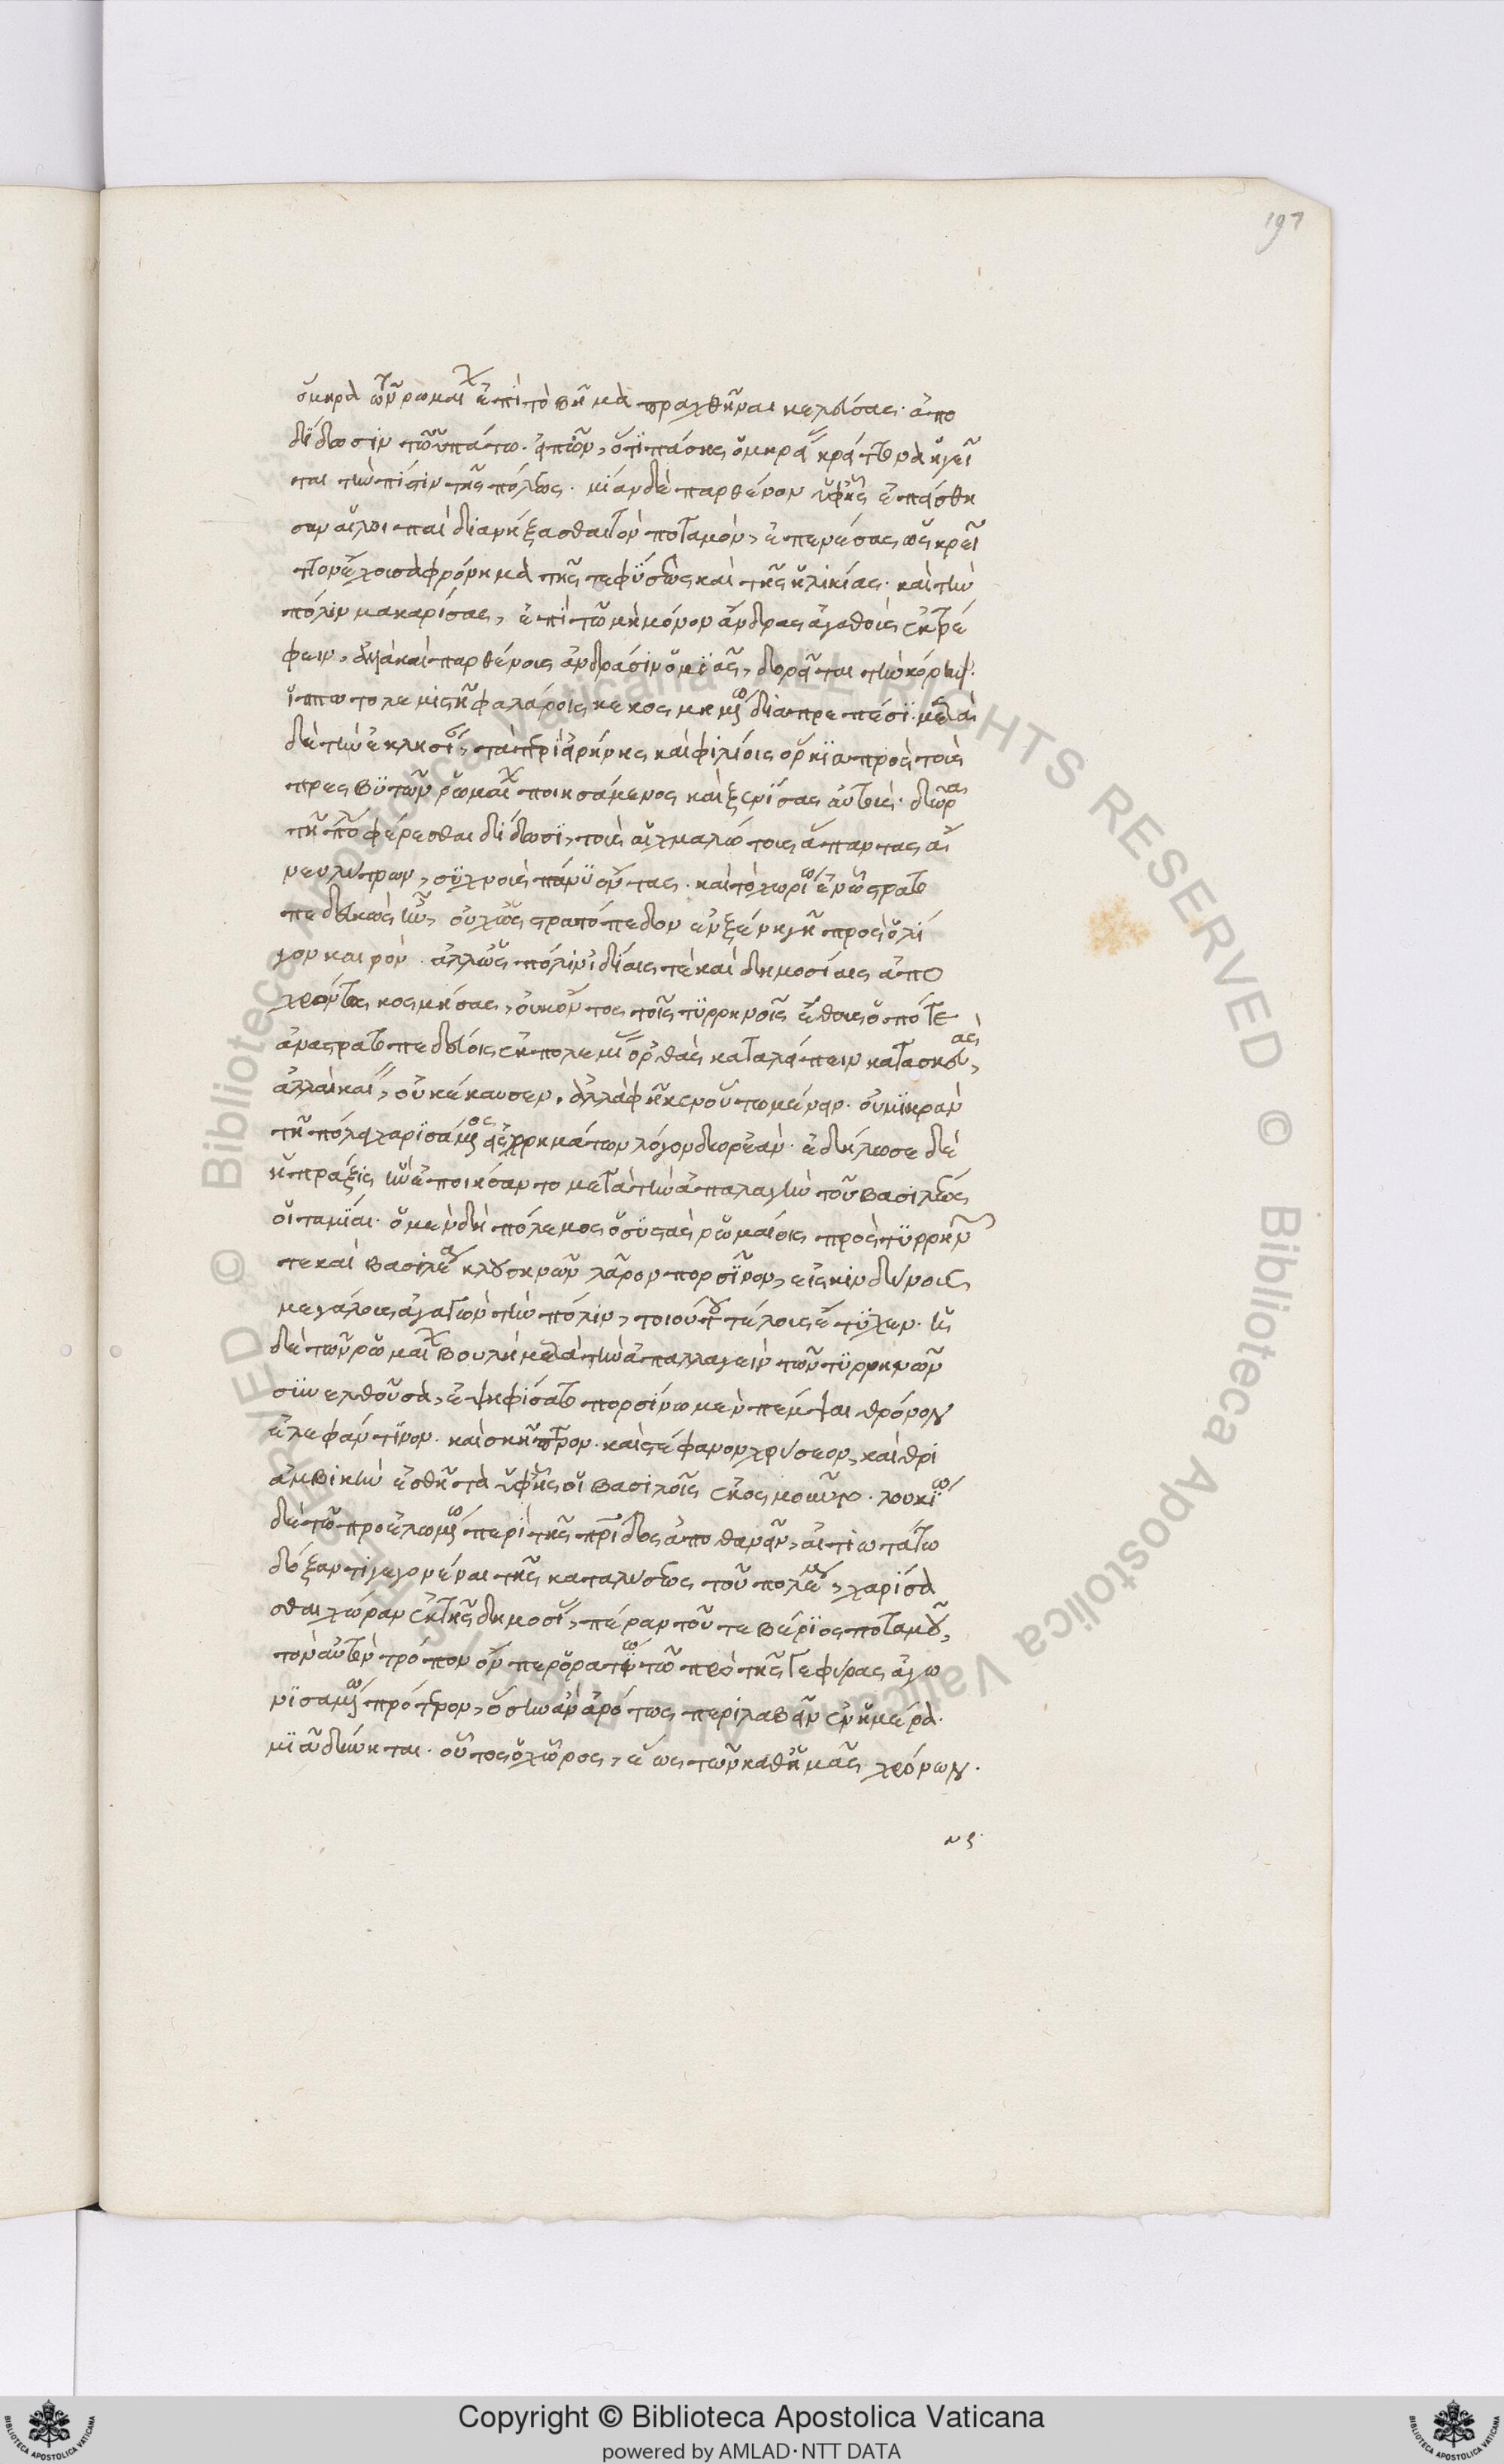 197
ὅμηρα τῶν ῥωμαί<χ> ἐπὶ τὸ βῆμα προαχθῆναι κελεύσας· ἀπο
δίδωσιν τῶ ὑπάτω· εἰπὼν, ὅτι πάσης ὁμηρείας κρείττονα ἡγεῖ
ται τὴν πίστιν τῆς πόλεως· μίαν δὲ παρθένον ὑφ' ἧς ἐπείσθη
σαν αἱ λοιπαὶ διανήξασθαι τὸν ποταμὸν, ἐπαινέσας ὡς κρεῖ
ττον ἔχουσα φρόνημα τῆς τε φύσεως καὶ τῆς ἡλικίας· καὶ τὴν
πόλιν μακαρίσας, ἐπὶ τῶ μὴ μόνον ἄνδρας ἀγαθοὺς ἐκτρέ
φειν, ἀλλὰ καὶ παρθένους ἀνδράσιν ὁμοίας, δωρεῖται τὴν κόρην
ἵππω πολεμιστῆ φαλάροις κεκοσμημένω διαπρεπέσι· μετὰ
δὲ τὴν ἐκκλησίαν, τὰ περὶ εἰρήνης καὶ φιλίας ὅρκια πρὸς τοὺς
πρεσβυτῶν ῥωμαί<χ> ποιησάμενος καὶ ξενίσας αὐτοὺς· δῶρα
τῆ πόλει φέρεσθαι δίδωσι, τοὺς αἰχμαλώτους ἅπαντας ἄ
νευ λύτρων, συχνοὺς πάνυ ὄντας· καὶ τὸ χωρίον ἐν ὧ ἐστρατο
πεδευκὼς ἦν, οὐχ ὡς στρατόπεδον ἐν ξένη γῆ πρὸς ὀλί
γον καιρὸν· ἀλλ' ὡς πόλιν ἰδίαις τε καὶ δημοσίαις ἀπο
χρώντως κοσμήσας, οὐκ ὄντος τοῖς τυρρηνοῖς ἔθους ὁπότε
ἀναστρατοπεδεύοιεν ἐκ πολεμίας ὀρθὰς καταλείπειν κατασκευὰς,
ἀλλὰ καίειν, οὐκ ἔκαυσεν. ἀλλ' ἀφῆκεν οὕτω μένειν· οὐ μικρὰν
τῆ πόλει χαρισάμενος εἰς χρημάτων λόγον δωρεὰν· ἐδήλωσε δὲ
ἡ πρᾶξις ἣν ἐποιήσαντο μετὰ τὴν ἀπαλαγὴν τοῦ βασιλέως
οἱ ταμίαι· ὁ μὲν δὴ πόλεμος ὁ συστὰς ῥωμαίοις πρὸς τυρρηνούς
τε καὶ βασιλέα κλουσηνῶν λάρον πορσῖνον, εἰς κινδύνους
μεγάλους ἀγαγὼν τὴν πόλιν, τοιούτου τέλους ἔτυχεν. ἡ
δὲ τῶν ῥωμαί<χ> βουλὴ μετὰ τὴν ἀπαλλαγεὶν τῶν τυρρηνῶν
συνελθοῦσα, ἐψηφίσατο πορσίνω μὲν πέμψαι θρόνον
ἐλεφάντινον· καὶ σκῆπτρον· καὶ στέφανον χρύσεον, καὶ θρι
αμβικὴν ἐσθῆτα ὑφ' ἧς οἱ βασιλεῖς ἐκοσμοῦντο· μουκίω
δὲ τῶ προελομένω περὶ τῆς πατρίδος ἀποθανεῖν, αἰτιωτάτω
δόξαντι γεγονέναι τῆς καταλύσεως τοῦ πολέμου, χαρίσα
σθαι χώραν ἐκ τῆς δημοσίας, πέραν τοῦ τεβέριος ποταμοῦ,
τὸν αὐτὸν τρόπον ὅνπερ ὁρατίω τῶ πρὸ τῆς γεφύρας ἀγω
νισαμένω πρότερον, ὅσην ἂν ἀρότρως περιλαβεῖν ἐν ἡμέρα
μιᾶ δύνηται· οὗτος ὁ χῶρος, ἕως τῶν καθ' ἡμᾶς χρόνων·